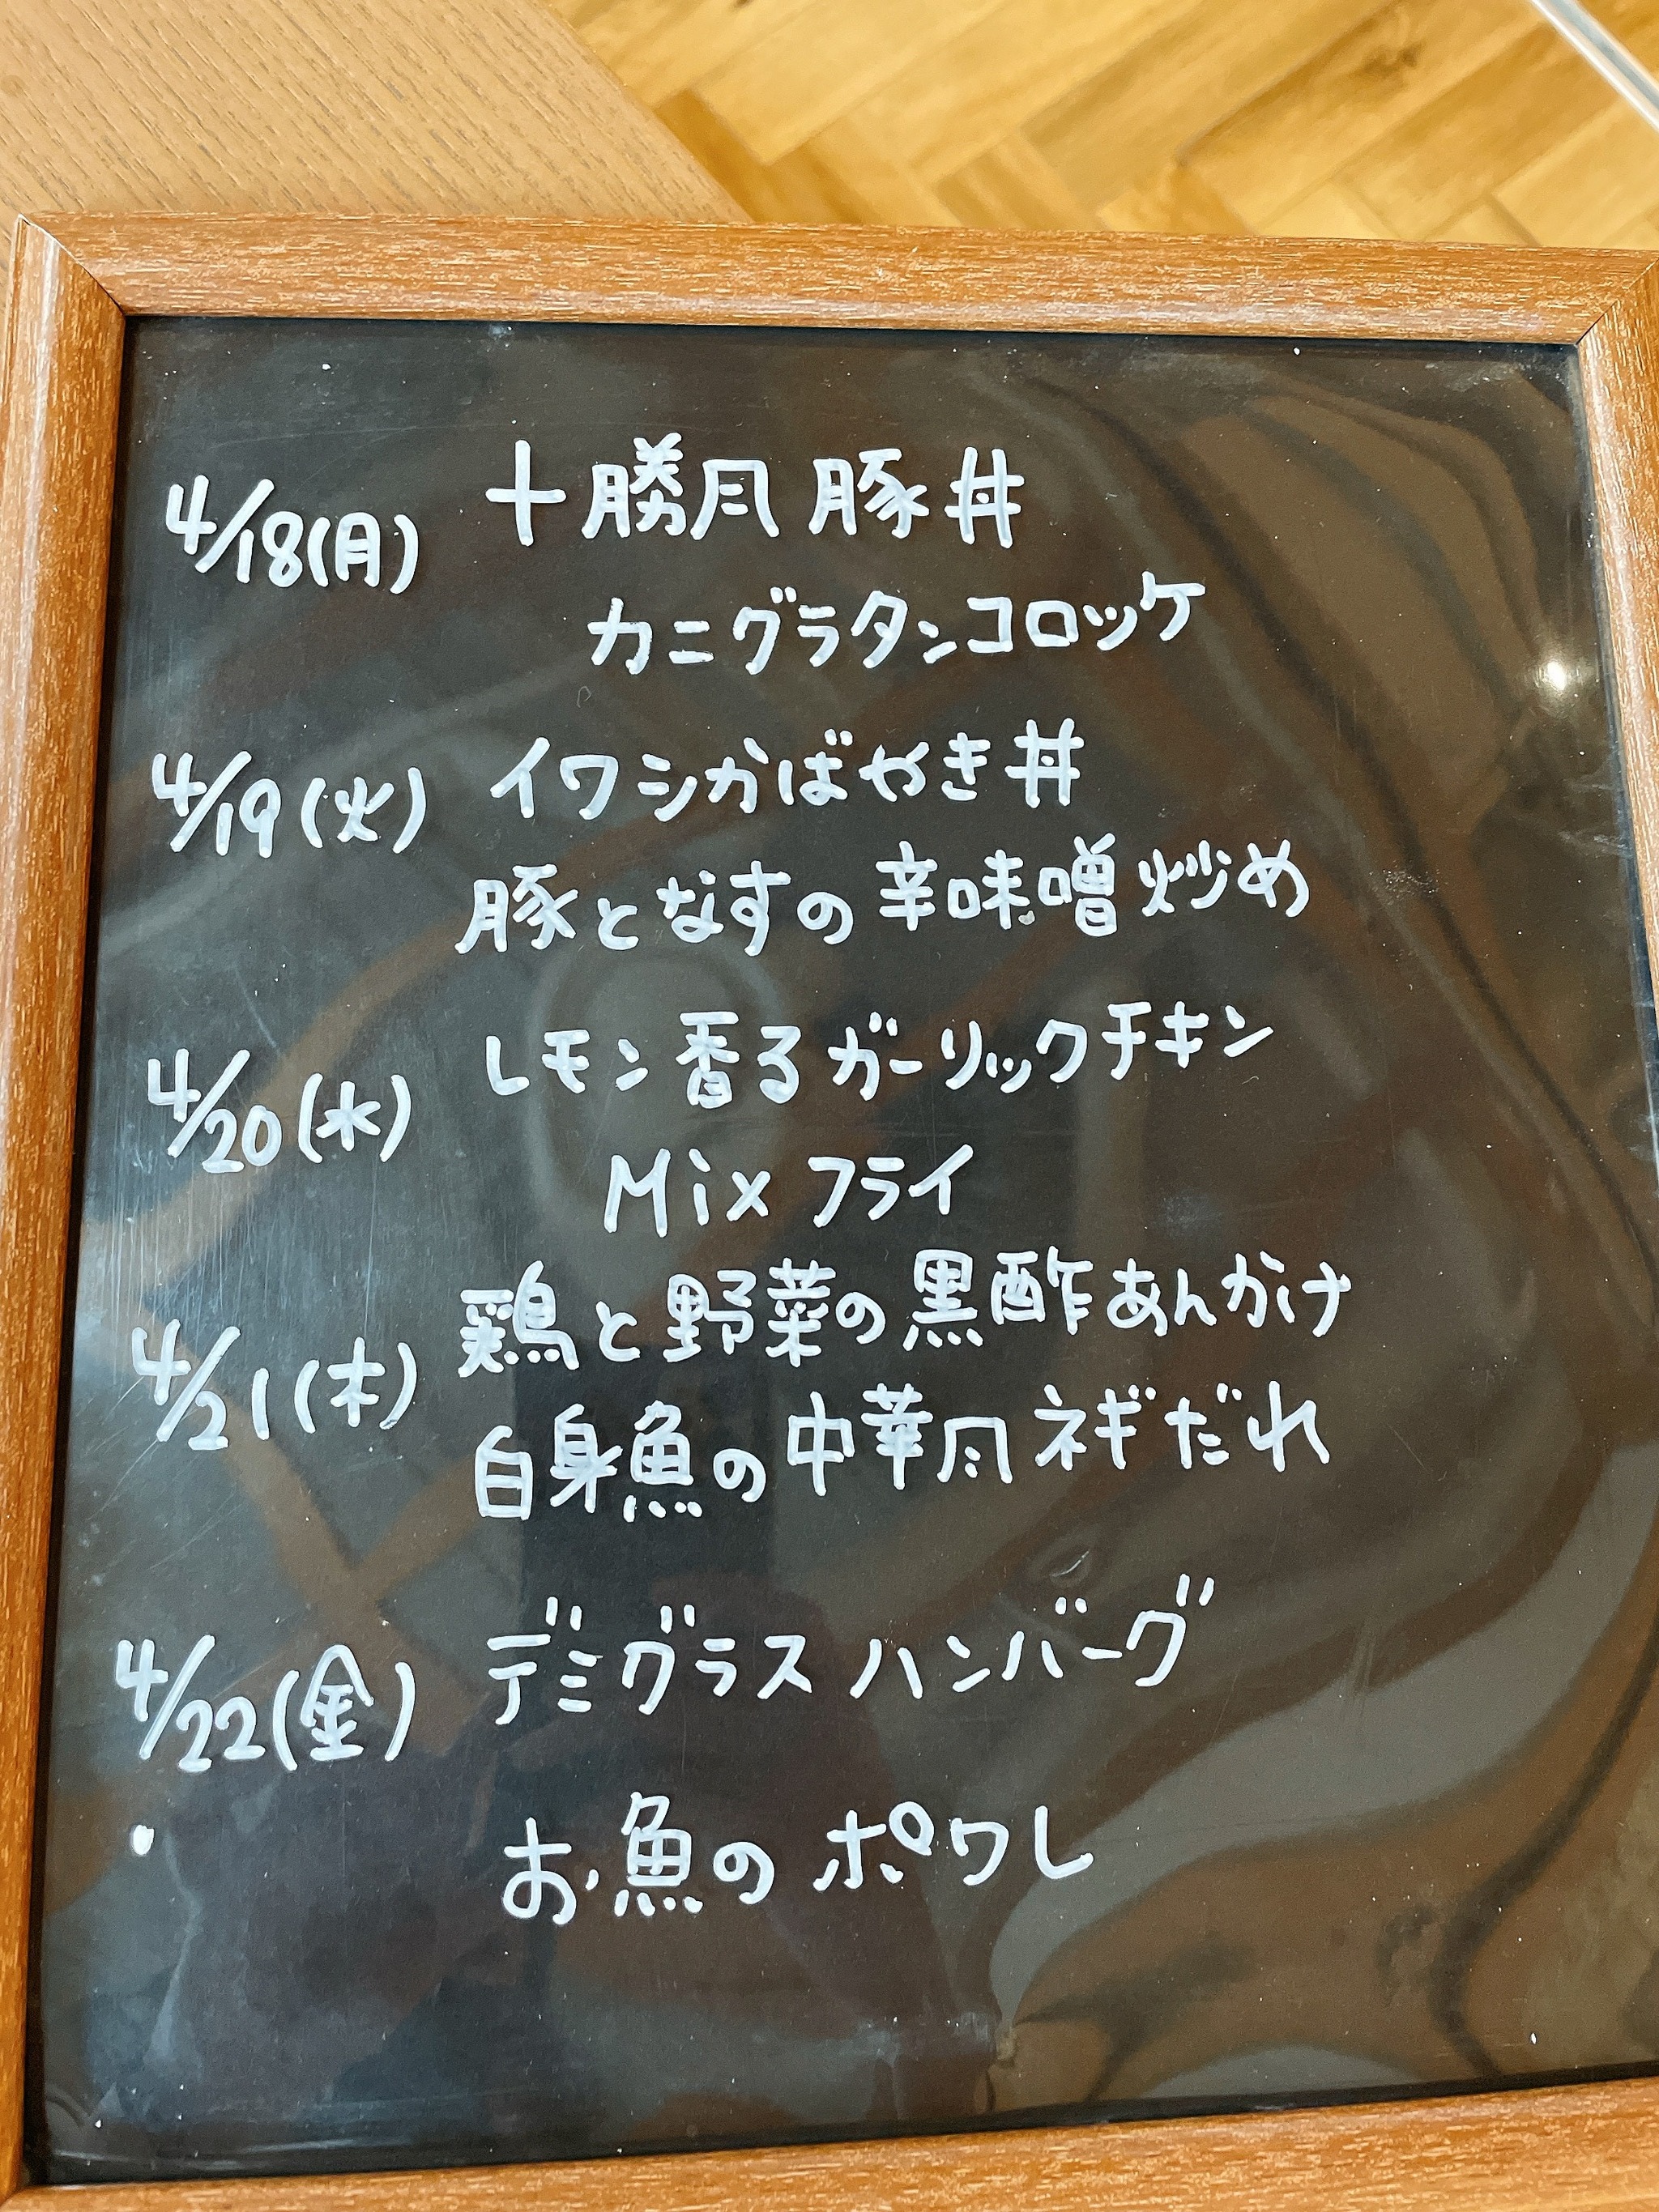 4/18(月) 十勝風 豚丼
カニグラタンコロッケ
4/19(火) イワシかばやき丼
豚となすの辛味噌炒め
4/20(水) レモン香るガーリックチキン
Mixフライ
4/21(木) 鶏と野菜の黒酢あんかけ
白身魚の中華風ネギだれ
4/22(金) デミグラスハンバーグ
お魚のポワレ